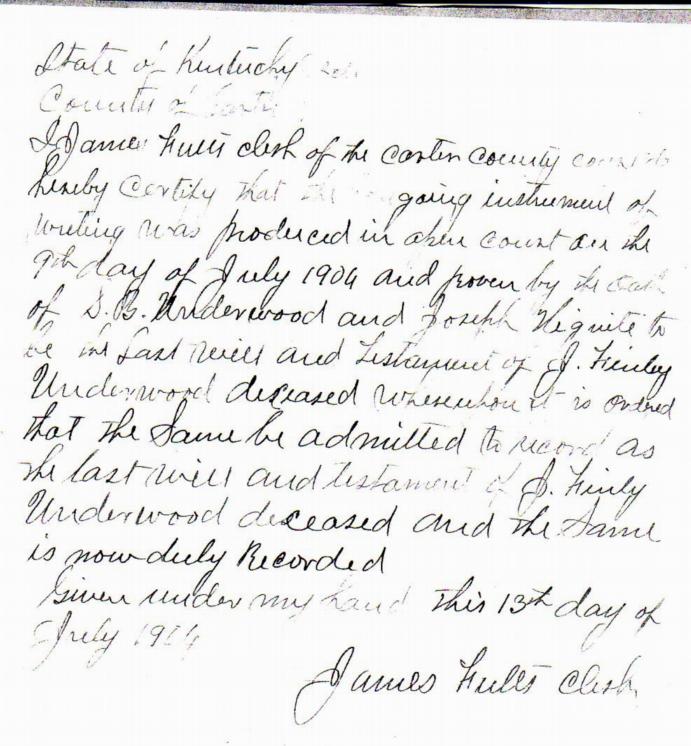 State of Kentucky
County of
I James Fults clerk of the carter county
hereby certify that the going instrument of
writing was produced in open court on the
9th day of July 1904 and proven by the oath
of D. B. Underwood and Joseph Hignite to
be the last will and testament of J. Finley
Underwood deceased whereuhon it is ordered
that the same be admitted to record as
the last will and testament of J. Finly
Underwood deceased and the same
is now duly Recorded
Given under my hand this 13th day of
July 1904
James Fults clerk